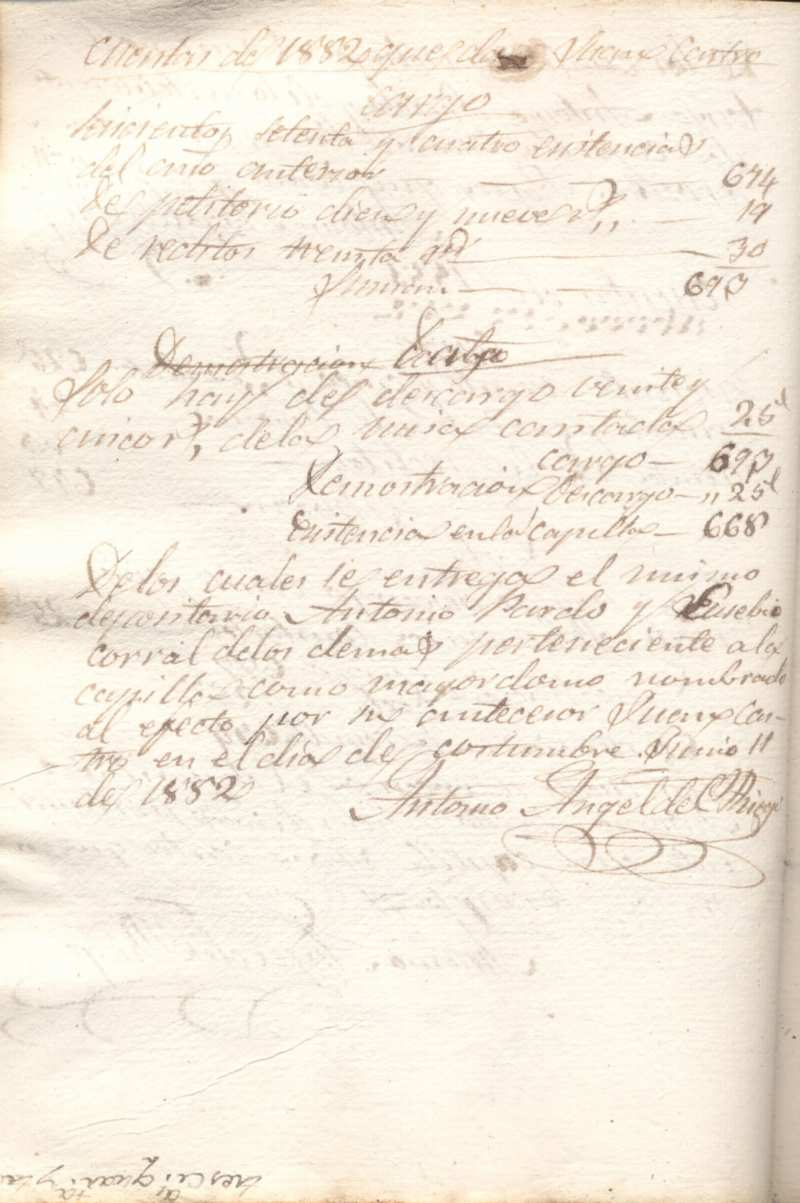 cuentas del 1882 que da Juan Castro
cargo
seicientos setenta y cuatro existencias
del año anterior 674
De petitorio diez y nueve rs,, 19
De reditos treinta rs 30
Suman 693
Demostracion Data
Solo hay del descargo veinte y
cinco rs, de las misas cantadas 25
cargo 693
Demostracion Descargo 25
existencia en la capilla 668
De los cuales se entrega el mismo
depositario Antonio Pardo y Eusebio
corral de los demas perteneciente a la
capilla como mayordomo nombrado
al efecto por su antecesor Juan Cas-
tro en el dia de costumbre Junio 11
de 1882
Antonio Angel del